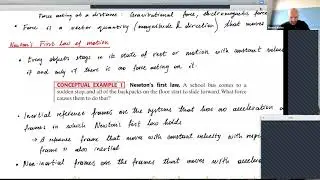 Force acting at a distance : Gravitational force, electromagnetic force
• Force is a vector quantity (magnitude & direction) that moves
Newton's First Law of motion
• Every objects stays in its state of rest or motion with constant veloci
if and only if there is no force acting on it.
CONCEPTUAL EXAMPLE 1 Newton's first law. A school bus comes to a
sudden stop, and all of the backpacks on the floor start to slide forward. What force
causes them to do that?
• Inertial reference frames are the systems that has no acceleration or
frames in which Newton's first law holds
→ A reference frame that moves with constant velocity with respe
frame is also inertial
• Non-inertial frames are the frames that moves with accelera